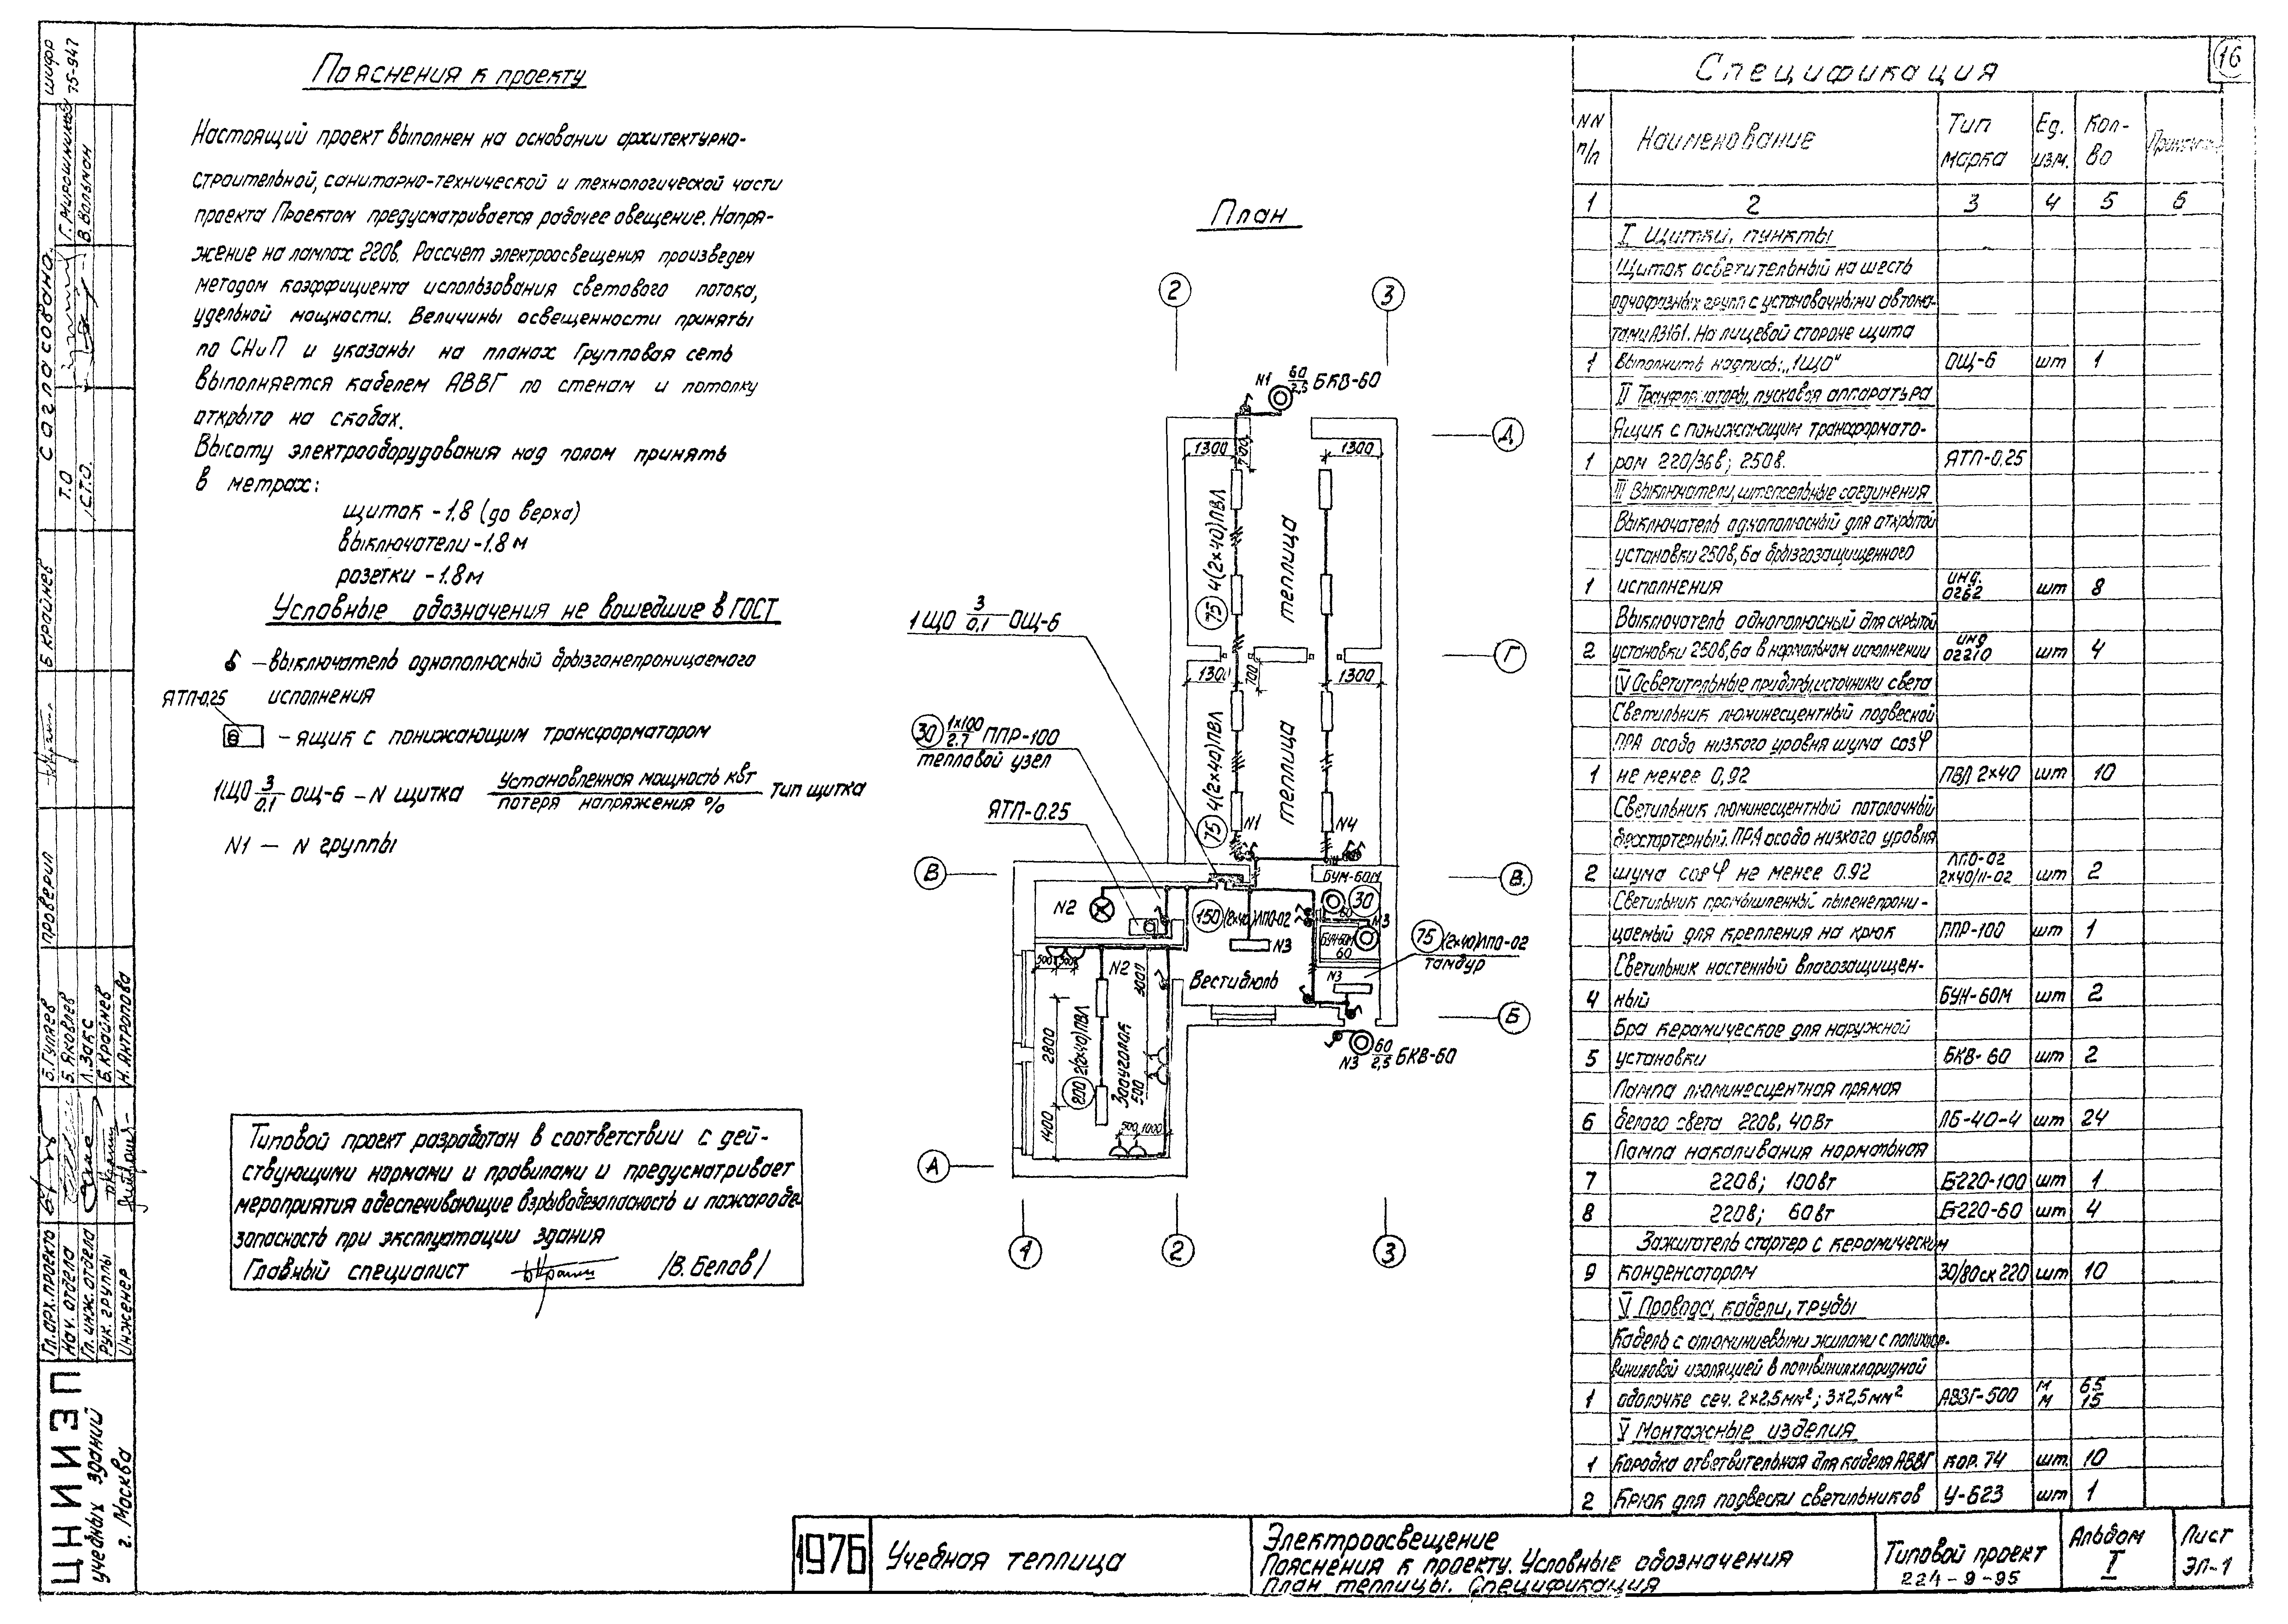 Пояснения к проекту
Настоящий проект выполнен на основании архитектурно-
строительной, санитарно-технической и технологической части
проекта Проектом предусматривается рабочее овещение. Напря-
жение на лампах 220в. Рассчет электроосвещения произведен
методом коэффициента использования светового потока,
удельной мощности. Величины освещенности приняты
по СНиП и указаны на планах Групповая сеть
выполняется кабелем АВВГ по стенам и потолку
открыто на скобах.
Высоту электрооборудования над полом принять
в метрах:
щиток - 1.8 (до верха)
выключатели - 1.8 м
розетки - 1.8 м
Условные обозначения не вошедшие в ГОСТ
- выключатель однополюсный брызганепроницаемого
исполнения
ЯТП-0,25
- ящик с понижающим трансформатором
1ЩО 3/0.1 ОЩ-6 - N щитка Установленная мощность квт / потеря напряжения % Тип щитка
N1 — N группы
Типовой проект разработан в соответствии с дей-
ствующими нормами и правилами и предусматривает
мероприятия обеспечивающие взрывобезопасность и пожаробе-
зопасность при эксплуатации здания
Главный специалист /В. Белов/
План
2
3
N1 60/2,5 БКВ-60
Д
1300
700
1300
75 4(2×40)ПВЛ
теплица
1ЩО 3/0,1 ОЩ-6
Г
1300
700
1300
30 1×100/2.7 ППР-100
тепловой узел
75 4(2×40)ПВЛ
теплица
ЯТП-0.25
N1
N4
В
В
БУМ-60М
N2
150 (2×40)ЛПО-02
60
30
N3
N3
БУН-60М
60
75 (2×40)ЛПО-02
тамбур
500
500
N2
3000
Вестибюль
N3
Б
2800
200 2(2×40)ПВЛ
Заоуголок
500
N3 60/2,5 БКВ-60
1400
500
1000
А
1
2
3
Спецификация
16
NN п/п
Наименование
Тип марка
Ед. изм.
Кол-во
1 2 3 4 5 6
I Щитки, пункты
Щиток осветительный на шесть
однофазных групп с установочными автома-
тами А3161. На лицевой стороне щита
1 выполнить надпись: „1ЩО" ОЩ-6 шт 1
II Трансформаторы, пусковая аппаратура
Ящик с понижающим трансформато-
1 ром 220/36в; 250в. ЯТП-0,25
III Выключатели, штепсельные соединения
Выключатель однополюсный для открытой
установки 250в, 6а брызгозащищенного
1 исполнения инд. 0262 шт 8
Выключатель однополюсный для скрытой
2 установки 250в, 6а в нормальном исполнении инд 02210 шт 4
IV Осветительные приборы, источники света
Светильник люминесцентный подвесной
ПРА особо низкого уровня шума cosφ
1 не менее 0,92 ПВЛ 2×40 шт 10
Светильник люминесцентный потолочный
бесстартерный. ПРА особо низкого уровня
2 шума cosφ не менее 0.92 ЛПО-02 2×40/П-02 шт 2
Светильник промышленный пыленепрони-
цаемый для крепления на крюк ППР-100 шт 1
Светильник настенный влагозащищен-
4 ный БУН-60М шт 2
Бра керамическое для наружной
5 установки БКВ-60 шт 2
Лампа люминесцентная прямая
6 белого света 220в, 40Вт ЛБ-40-4 шт 24
Лампа накаливания нормальная
7 220в; 100вт Б-220-100 шт 1
8 220в; 60вт Б-220-60 шт 4
Зажигатель стартер с керамическим
9 конденсатором 30/80ск 220 шт 10
V Провода, кабели, трубы
Кабель с алюминиевыми жилами с полихлор-
виниловой изоляцией в поливинилхлоридной
1 оболочке сеч. 2×2,5мм²; 3×2,5мм² АВВГ-500 м м 65 15
V Монтажные изделия
1 Коробка ответвительная для кабеля АВВГ кор. 74 шт. 10
2 Крюк для подвески светильников У-623 шт 1
1976
Учебная теплица
Электроосвещение
Пояснения к проекту. Условные обозначения
План теплицы. Спецификация
Типовой проект
224-9-95
Альбом
I
Лист
ЭЛ-1
шифр
75-947
Согласовано
Г. Мирошников
В. Вольман
Т.О
С.Т.О.
Б Крайнев
проверил
Б. Гуляев
Б. Яковлев
Л. Закс
Б. Крайнев
Н. Антропова
Гл. арх. проекта
Нач. отдела
Гл. инж. отдела
Рук. группы
Инженер
ЦНИИЭП
учебных зданий
г. Москва